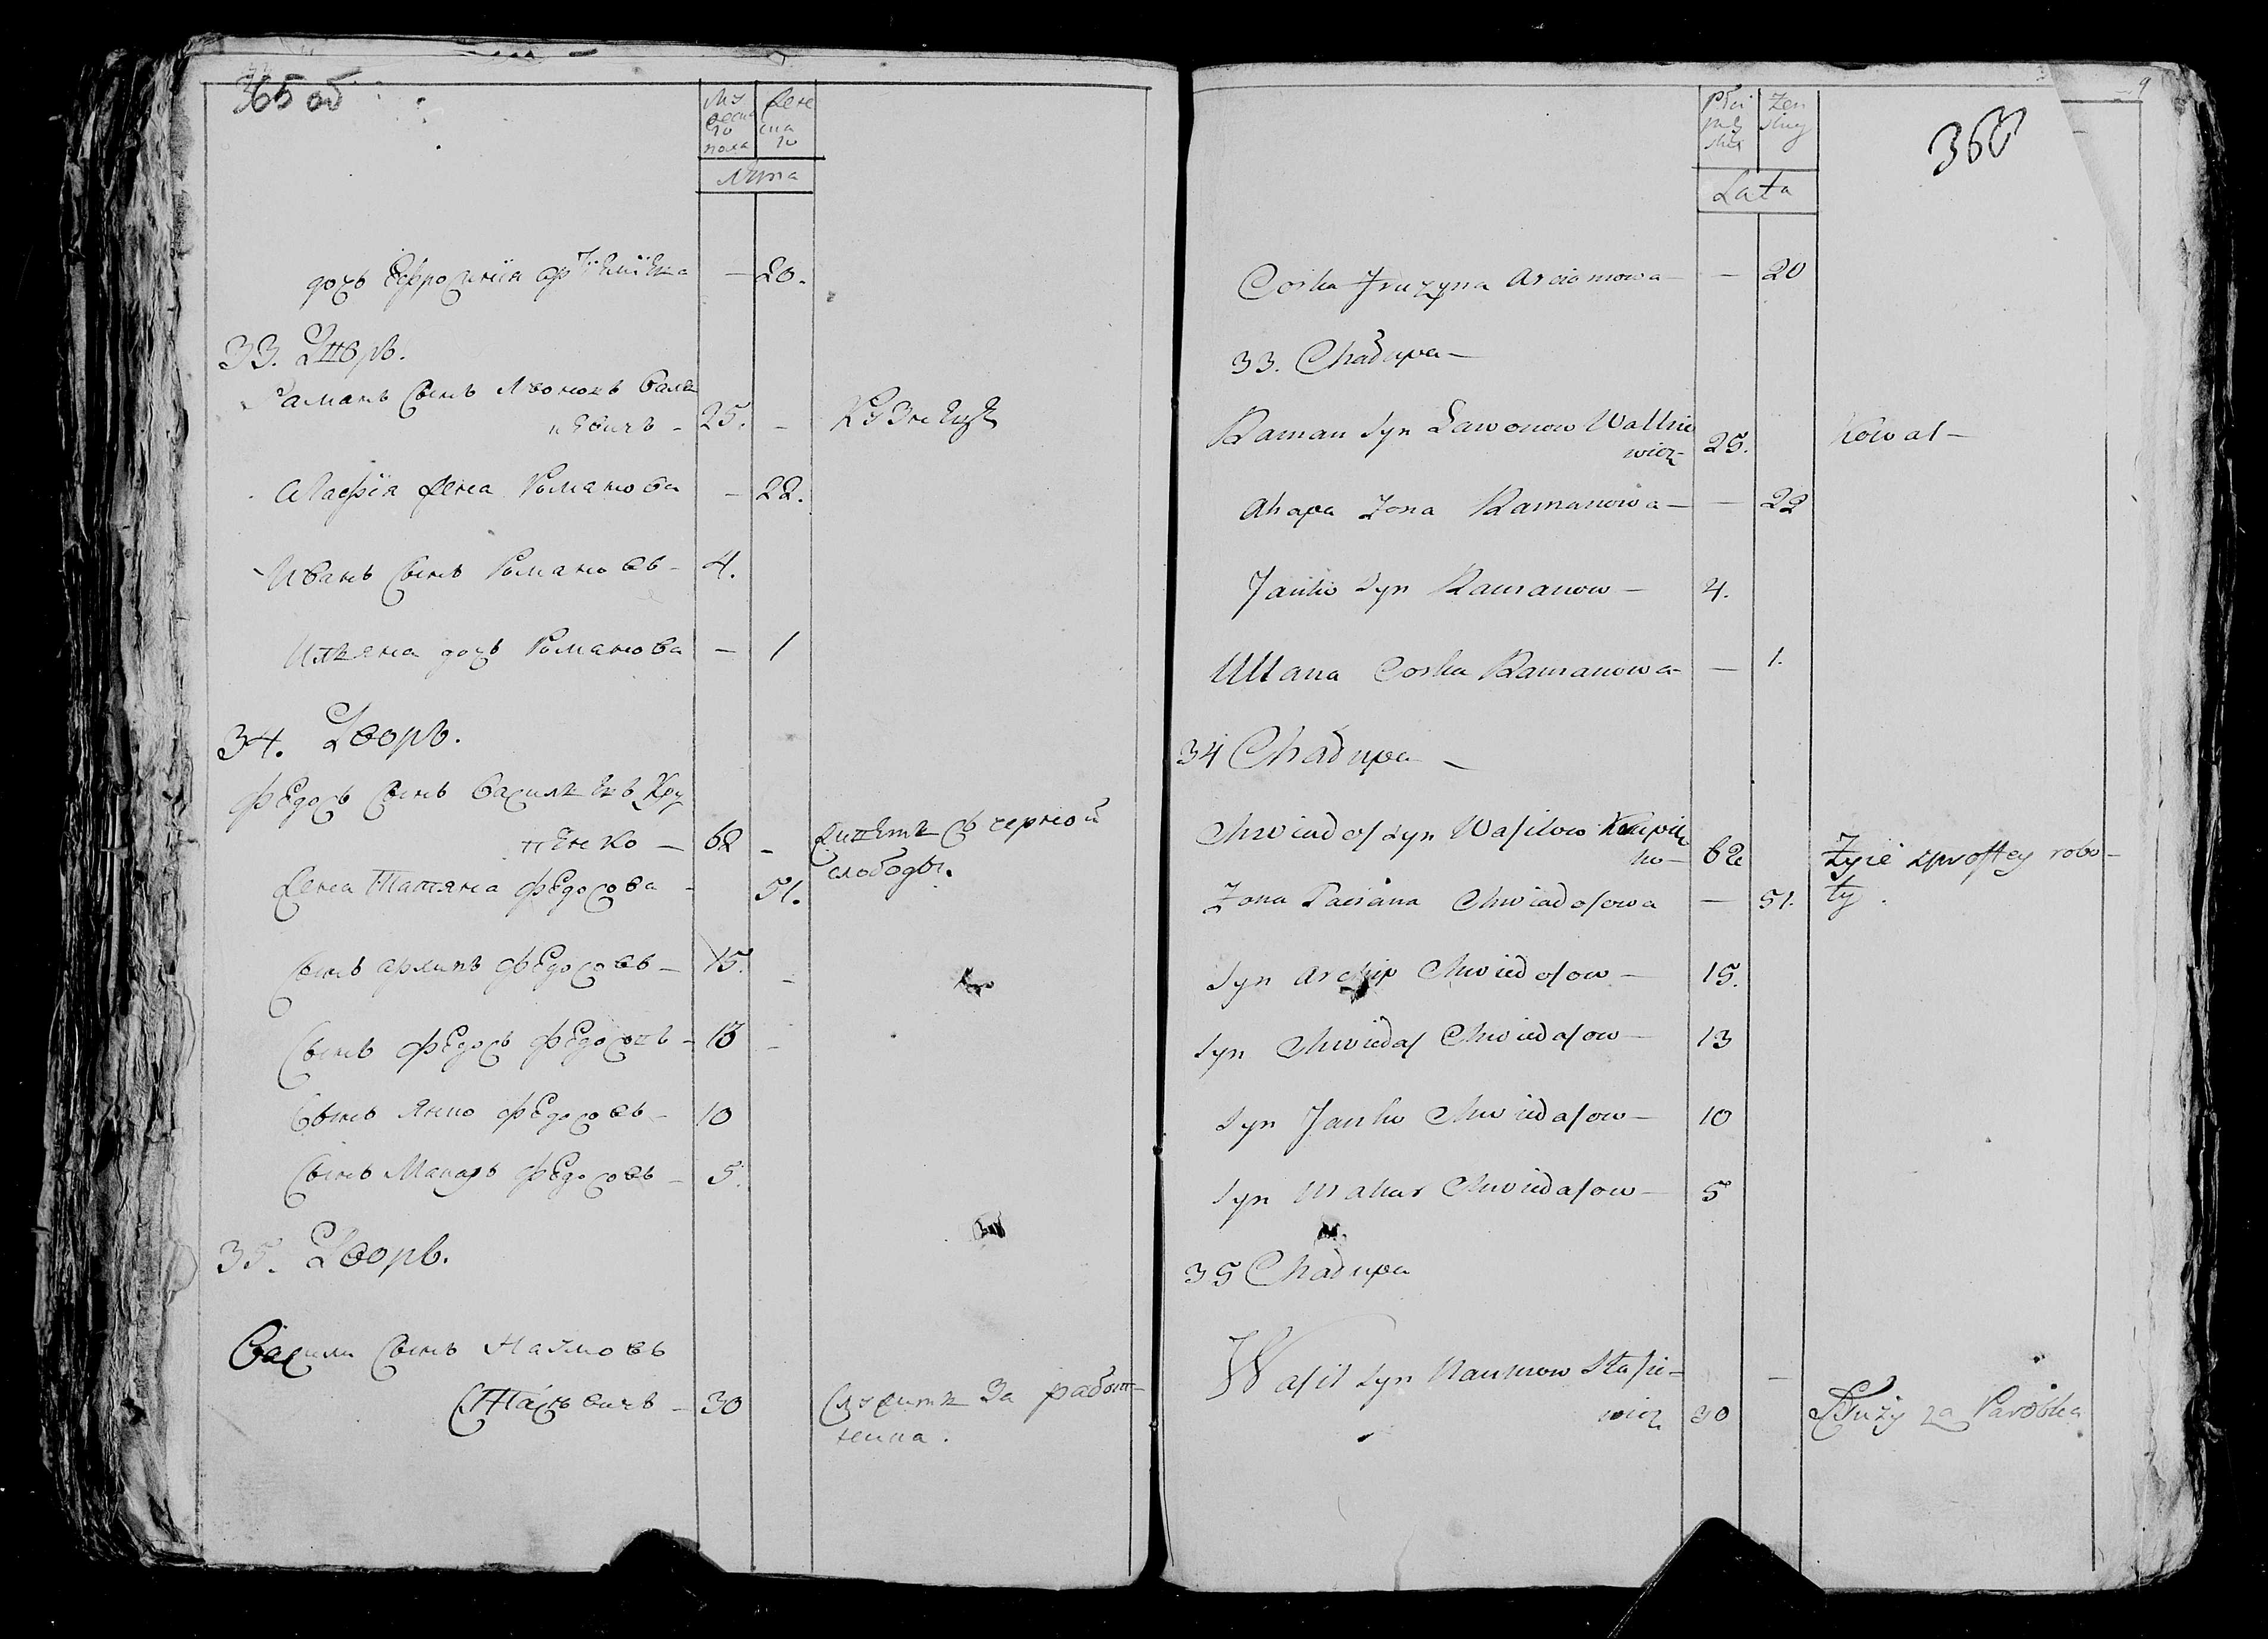 365 об
Му
жеска
го
пола
Жене
ска
го
Лѣта
дочь Ефросинїя
— 20.
33. Дворъ.
Раманъ Сынъ
25. — Кузнецъ
Жена Романова — 22.
Иванъ Сынъ Романовъ — 4.
Ульяна дочь Романова — 1
34. Дворъ.
Федосъ Сынъ Васильевъ Кру
пенко — 62 — живетъ съ черной
слободы.
Жена Татяна Федосова — 51.
Сынъ архипъ Федосовъ — 15. —
Сынъ Федосъ Федосовъ — 13 —
Сынъ Янко Федосовъ — 10
Сынъ Макаръ Федосовъ — 5.
35. Дворъ.
Васили Сынъ Наумовъ
Стасевичъ — 30 Служитъ За работ—
ника.
9
360
Płci
męz
skiej
Zen
skiey
Lata
Corka Fruzyna Arciomowa — — 20
33. Chałupa —
Raman Syn Lawonow
wicz 25. Kowal —
Ahapa Zona Ramanowa — — 22
Janko Syn Ramanow — 4.
Ullana Corka Ramanowa — — 1.
34 Chałupa —
Chwiedos Syn Wasilow Krupien
ko — 62 Zyie zprostey robo—
Zona Taciana Chwiedosowa — 51. ty.
Syn Archip Chwiedosow — 15.
Syn Chwiedos Chwiedosow — 13
Syn Janko Chwiedosow — 10
Syn Makar Chwiedosow — 5
35 Chałupa
Wasil Syn Naumow Stasie—
wicz 30 — Służy za Parobka